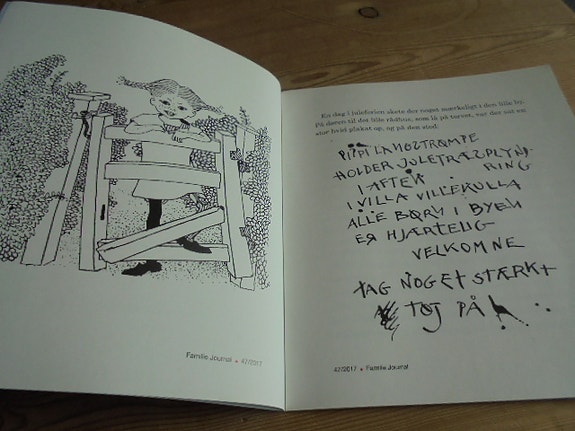 Familie Journal • 42/2017
En dag i juleferien skete der noget mærkeligt i den lille by.
På døren til det lille rådhus, som lå på torvet, var der sat en
stor hvid plakat op, og på den stod:
PIPI LANGSTRØMPE
HOLDER JULETRÆSPLYND
RING
I AFTEN
I VILLA VILLEKULLA
ALLE BØRN I BYEN
ER HJÆRTELIG
VELKOMNE
TAG NOGET STÆRKT
TØJ PÅ
42/2017 • Familie Journal